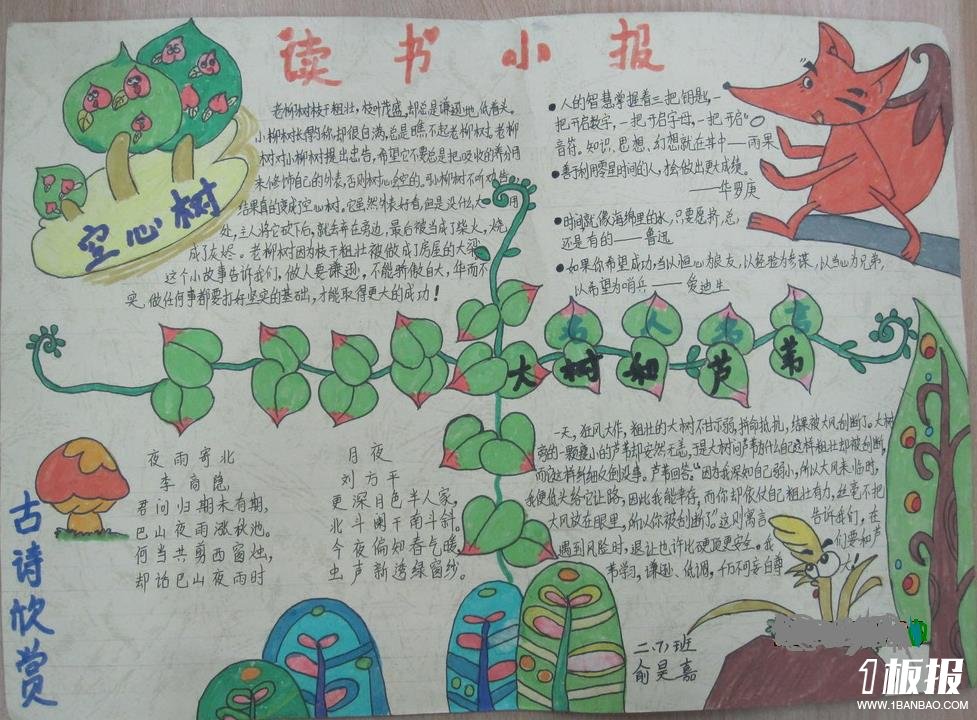 读书小报
空心树
老柳树枝干粗壮，枝叶茂盛，却总是谦逊地低着头。
小柳树长得 你却很自满，总是瞧不起老柳树。老柳
树对小柳树提出忠告，希望它不要总是把吸收的养分用
来修饰自己的外表，否则树心会空的。可小柳树不听劝告。
结果真的变成了空心树。它虽然外表好看，但是没什么大 用
处，主人将它砍下后，就丢弃在旁边，最后被当成了柴火，烧
成了灰烬。老柳树因为枝干粗壮被做成了房屋的大梁
这个小故事告诉我们，做人要谦逊，不能骄傲自大，华而不
实，做任何事都要打好坚实的基础，才能取得更大的成功！
●人的智慧掌握着三把钥匙，一
把开启数字，一把开启字母，一把开启
音符。知识、思想、幻想就在其中——雨果
●善于利用零星时间的人，才会做出更大成绩。
——华罗庚
●时间就像海绵里的水，只要愿挤，总
还是有的——鲁迅
●如果你希望成功，当以恒心为良友，以经验为参谋，以当心为兄弟，
以希望为哨兵——爱迪生
名人名言
大树和芦苇
一天，狂风大作，粗壮的大树不甘示弱，拼命抵抗，结果被大风刮断了。大树
旁的一颗 小的芦苇却安然无恙，于是大树问芦苇为什么自己这样粗壮却被刮断，
而 这样纤细么 到没事。芦苇回答：“因为我深知自己弱小，所以大风来临时，
我便低头给它让路，因此我能幸存，而你却依仗自己粗壮有力，丝毫不把
大风放在眼里，所以你被刮断了。”这则寓言 告诉我们，在
遇到风险时，退让也许比硬顶更安全。我 们要和芦
苇学习，谦逊、低调，千万不可妄自尊 大！
夜雨寄北
李商隐
君问归期未有期，
巴山夜雨涨秋池。
何当共剪西窗烛，
却话巴山夜雨时
月夜
刘方平
更深月色半人家，
北斗阑干南斗斜。
今夜偏知春气暖，
虫声新透绿窗纱。
古诗欣赏
二.(7)班
俞昊嘉
1板报
WWW.1BANBAO.COM